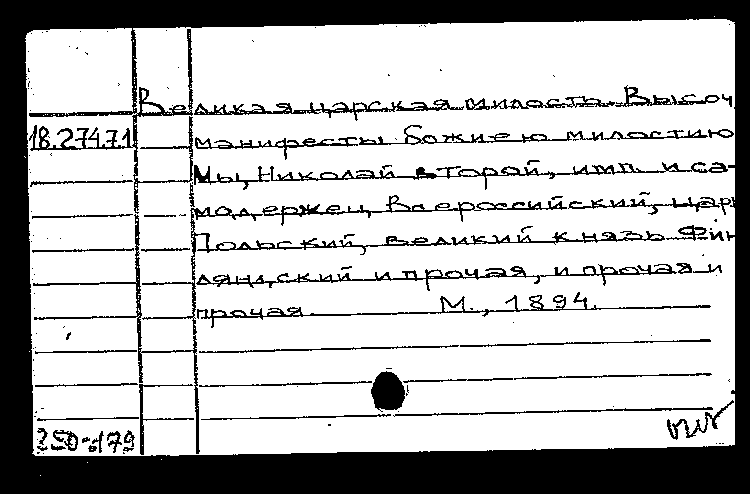 Великая царская милость. Высоч
18.274.7.1 манифесты Божиею милостию
Мы, Николай второй, имп. и са-
модержец Всероссийский, царь
Польский, великий князь Фин
ляндский и прочая, и прочая и
прочая. М., 1894.
250-179